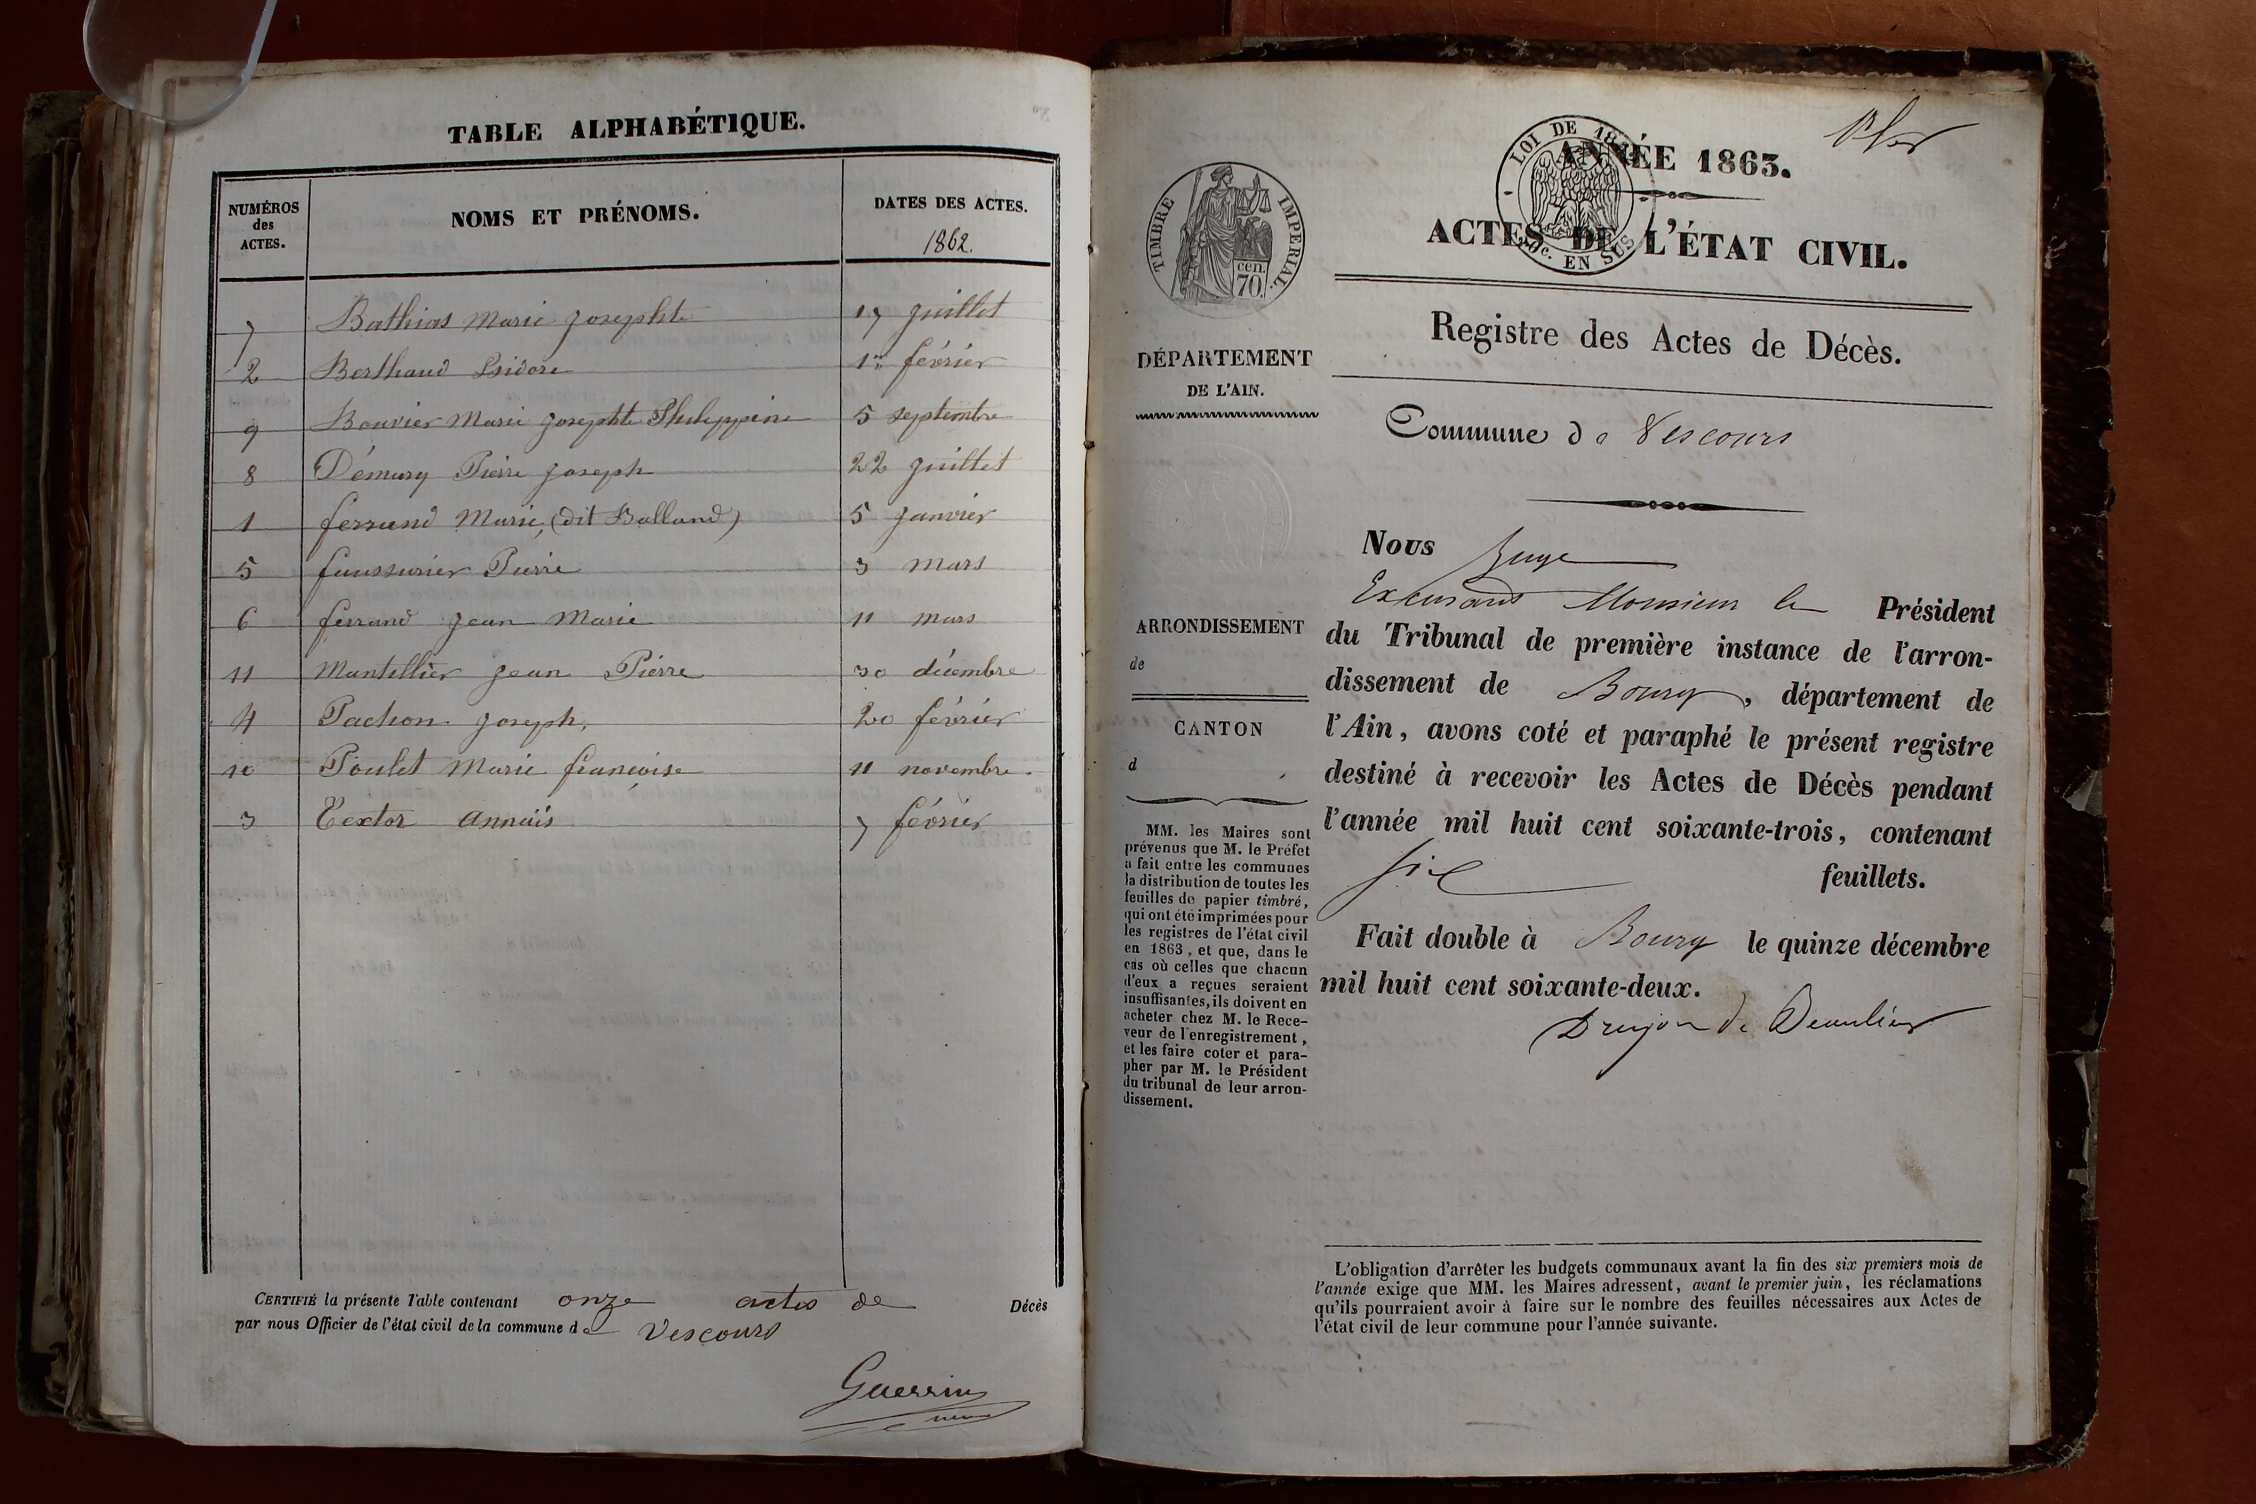 TABLE ALPHABÉTIQUE.
NUMÉROS des ACTES.
NOMS ET PRÉNOMS.
DATES DES ACTES.
1862.
7 Bathias Marie Josephte 17 juillet
2 Berthaud Isidore 1er février
9 Bouvier Marie Josephte Philippine 5 septembre
8 Démury Pierre Joseph 22 juillet
1 ferrand Marie, (dit Balland) 5 janvier
5 faussurier Pierre 3 mars
6 ferrand Jean Marie 11 mars
11 Mantellier Jean Pierre 30 décembre
4 Pachon Joseph, 20 février
10 Poulet Marie françoise 11 novembre.
3 Textor Annaïs 7 février
CERTIFIÉ la présente Table contenant onze actes de Décès
par nous Officier de l'état civil de la commune de Vescours
Guerrin
LOI DE
10c. EN SUS
TIMBRE IMPERIAL.
cen.
70.
ANNÉE 1863.
ACTES DE L'ÉTAT CIVIL.
Registre des Actes de Décès.
DÉPARTEMENT
DE L'AIN.
Commune de Vescours
ARRONDISSEMENT
de
CANTON
d
MM. les Maires sont
prévenus que M. le Préfet
a fait entre les communes
la distribution de toutes les
feuilles de papier timbré,
qui ont été imprimées pour
les registres de l'état civil
en 1863, et que, dans le
cas où celles que chacun
d'eux a reçues seraient
insuffisantes, ils doivent en
acheter chez M. le Rece-
veur de l'enregistrement,
et les faire coter et para-
pher par M. le Président
du tribunal de leur arron-
dissement.
Nous Juge
Excusant Monsieur le Président
du Tribunal de première instance de l'arron-
dissement de Bourg, département de
l'Ain, avons coté et paraphé le présent registre
destiné à recevoir les Actes de Décès pendant
l'année mil huit cent soixante-trois, contenant
six feuillets.
Fait double à Bourg le quinze décembre
mil huit cent soixante-deux.
Drujon de Beaulieu
L'obligation d'arrêter les budgets communaux avant la fin des six premiers mois de
l'année exige que MM. les Maires adressent, avant le premier juin, les réclamations
qu'ils pourraient avoir à faire sur le nombre des feuilles nécessaires aux Actes de
l'état civil de leur commune pour l'année suivante.